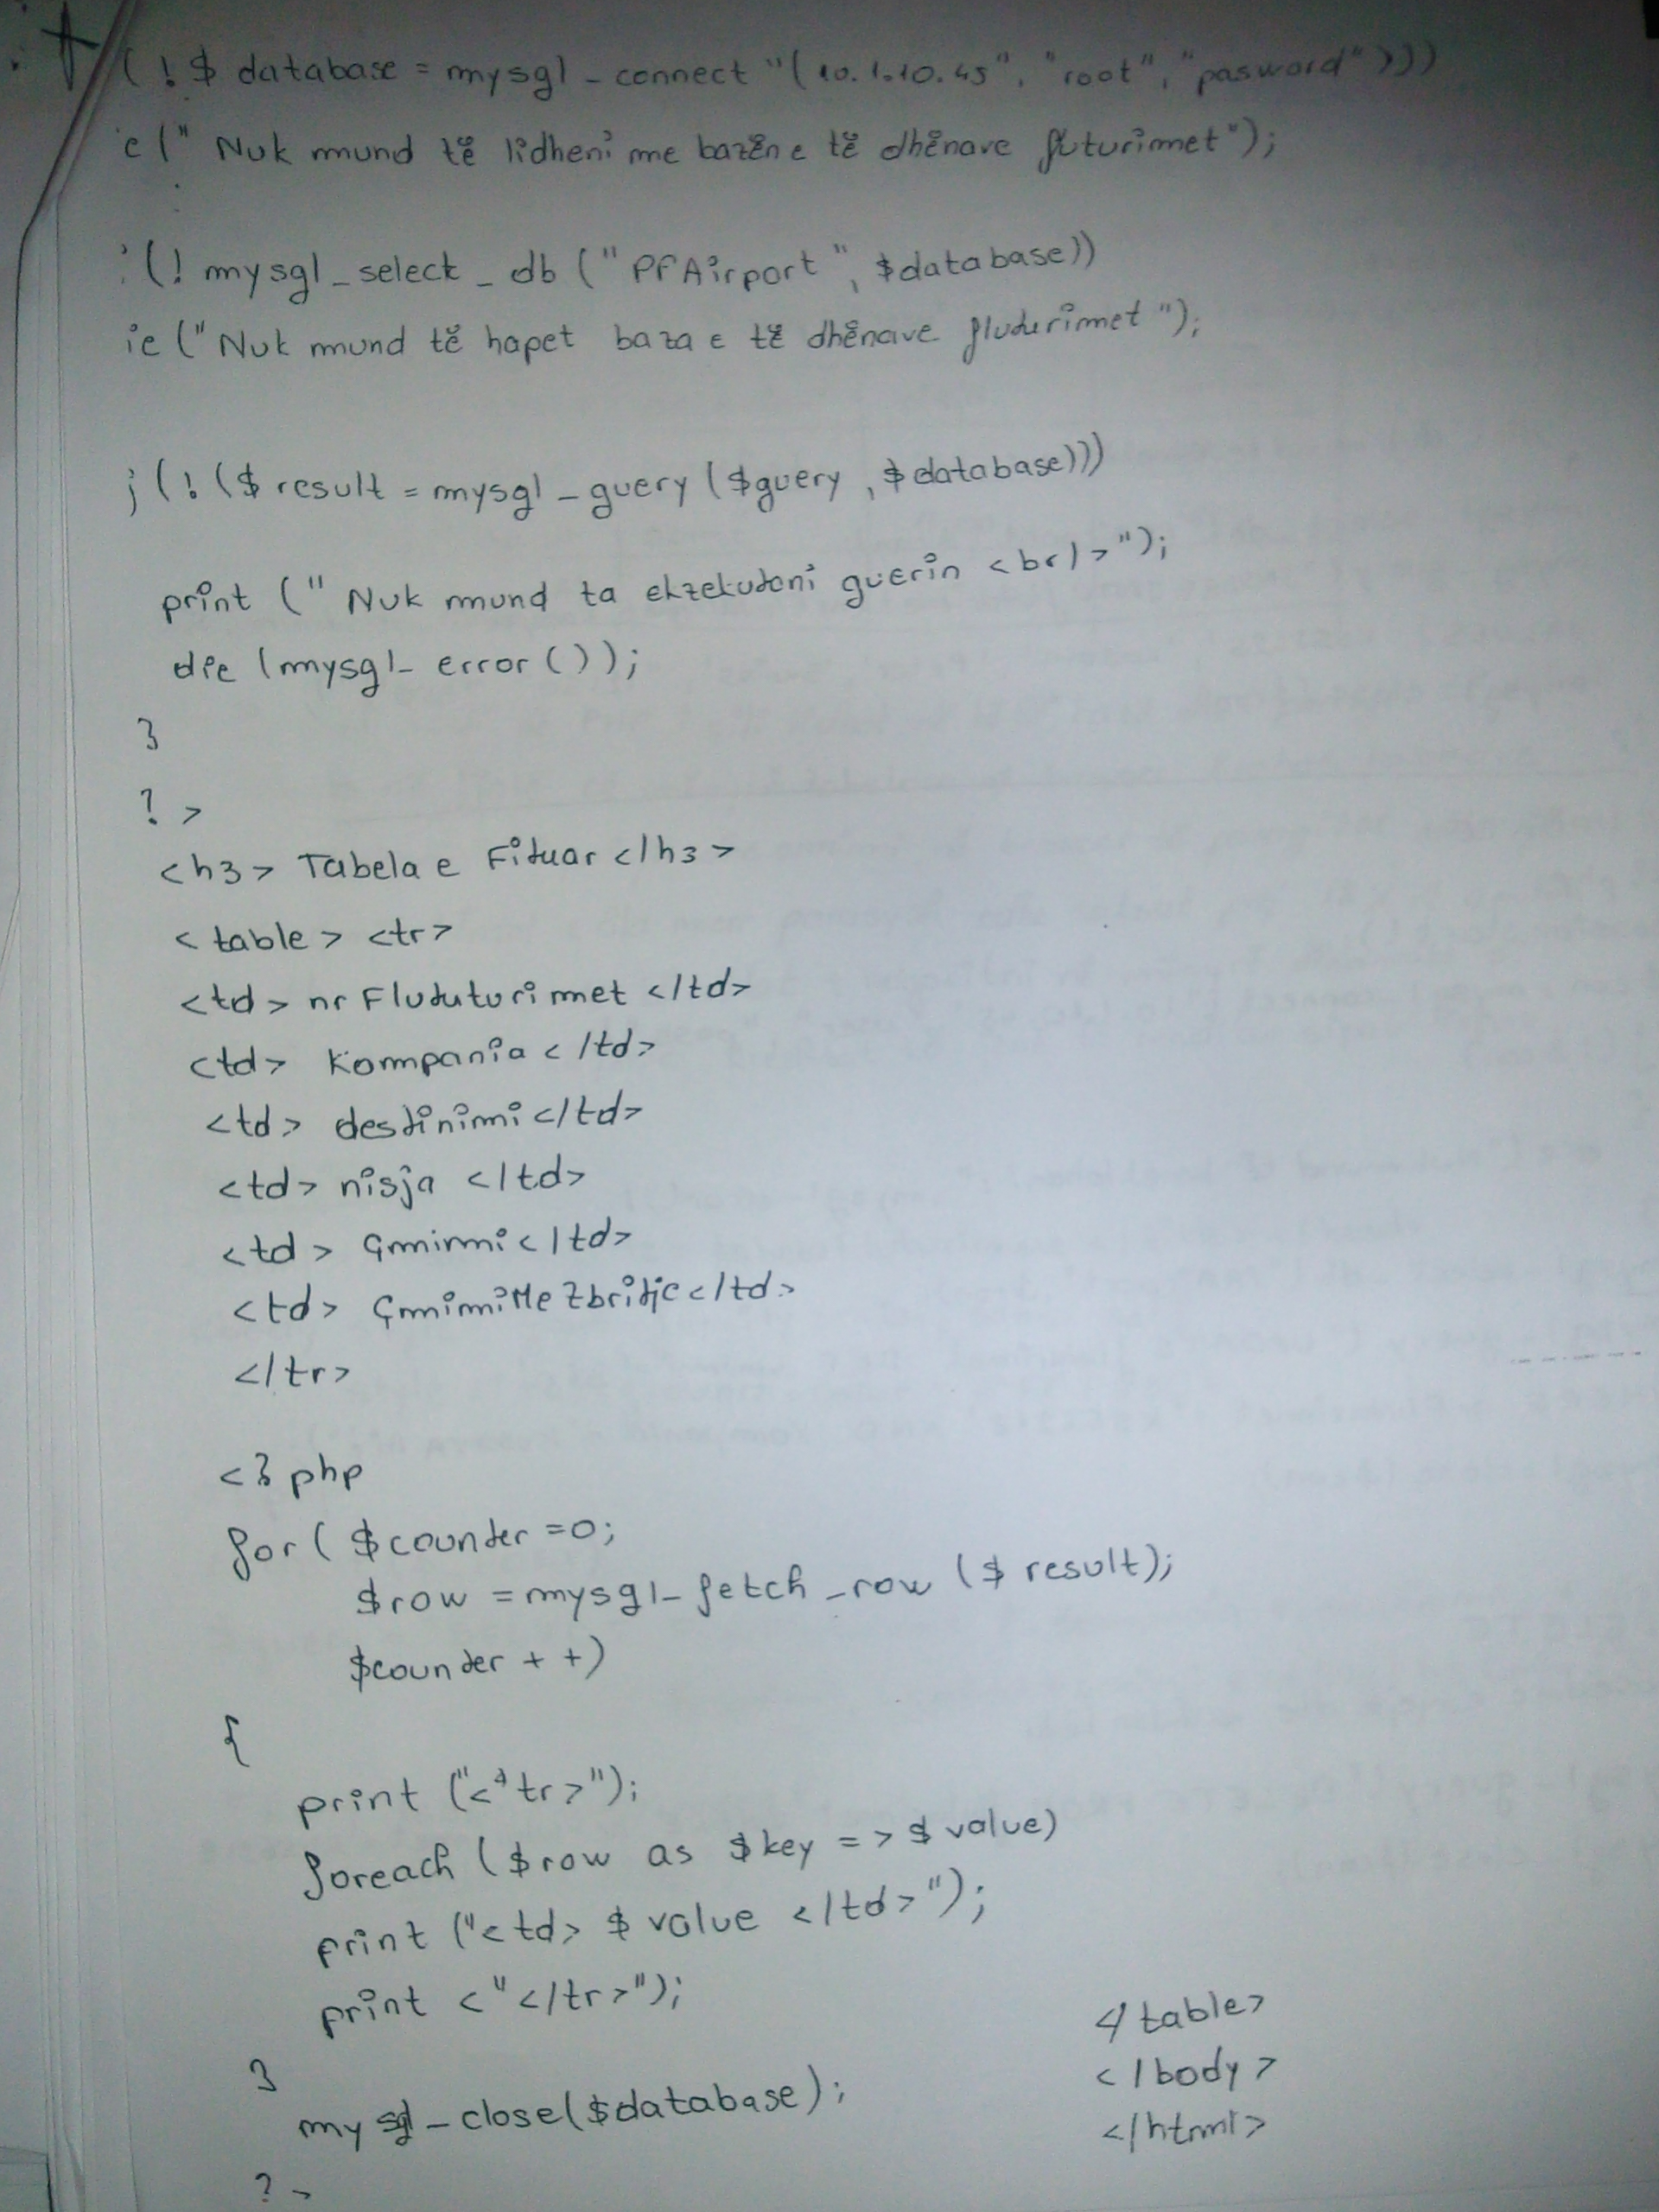 (!$ database = mysql_connect "(10.1.10.45", "root", "pasword")))
e(" Nuk mund të lidheni me bazën e të dhënave fluturimet");
(! mysql_select_db ("PFAirport", $database))
ie ("Nuk mund të hapet baza e të dhënave fluturimet");
(!($result = mysql_query ($query, $database)))
print (" Nuk mund ta ekzekutoni querin <br/>");
die (mysql_error());
}
?>
<h3> Tabela e Fituar </h3>
<table> <tr>
<td> nr Flututurimet </td>
<td> Kompania </td>
<td> destinimi </td>
<td> nisja </td>
<td> Çmimi </td>
<td> ÇmimiMeZbritje </td>
</tr>
<?php
for( $counter =0;
$row = mysql_fetch_row ($ result);
$counter ++)
{
print ("<tr>");
foreach ($row as $key => $value)
print ("<td> $ value </td>");
print <"</tr>");
}
mysql_close($database);
?>
</table>
</body>
</html>